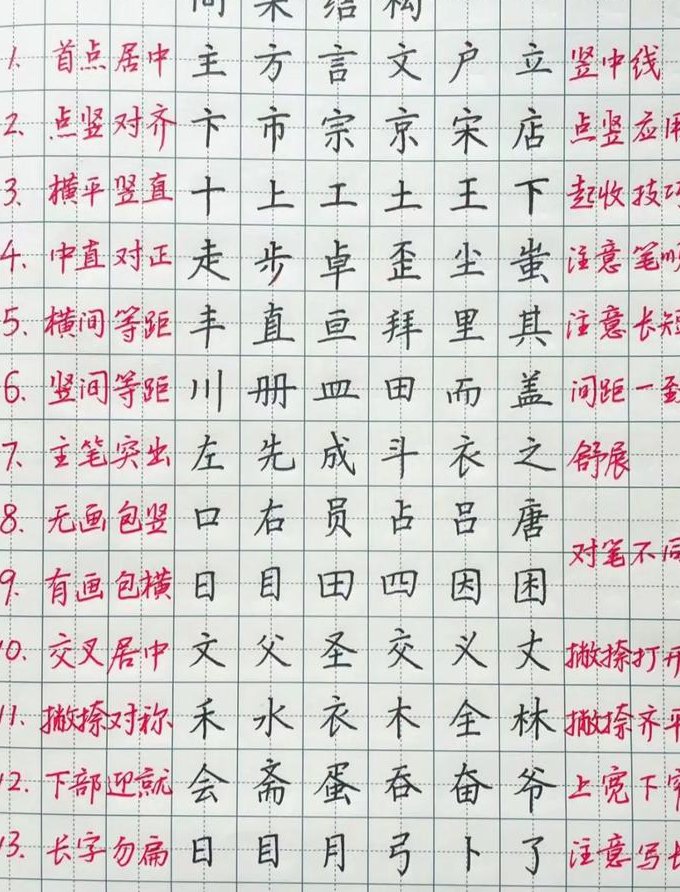 间架结构
1. 首点居中 主方言文户立 竖中线
2. 点竖对齐 卞市宗京宋店 点竖应用
3. 横平竖直 十上工土王下 起收技巧
4. 中直对正 走步卓歪尘蚩 注意笔顺
5. 横间等距 丰直亘拜里其 注意长短
6. 竖间等距 川册皿田而盖 间距一致
7. 主笔突出 左先成斗衣之 舒展
8. 无画包竖 口右员占吕唐
对笔不同
9. 有画包横 日目田四因困
10. 交叉居中 文父圣交义丈 撇捺打开
11. 撇捺对称 禾水衣木全林 撇捺齐平
12. 下部迎就 会斋蛋吞奋爷 上宽下窄
13. 长字勿扁 日目月弓卜了 注意写长